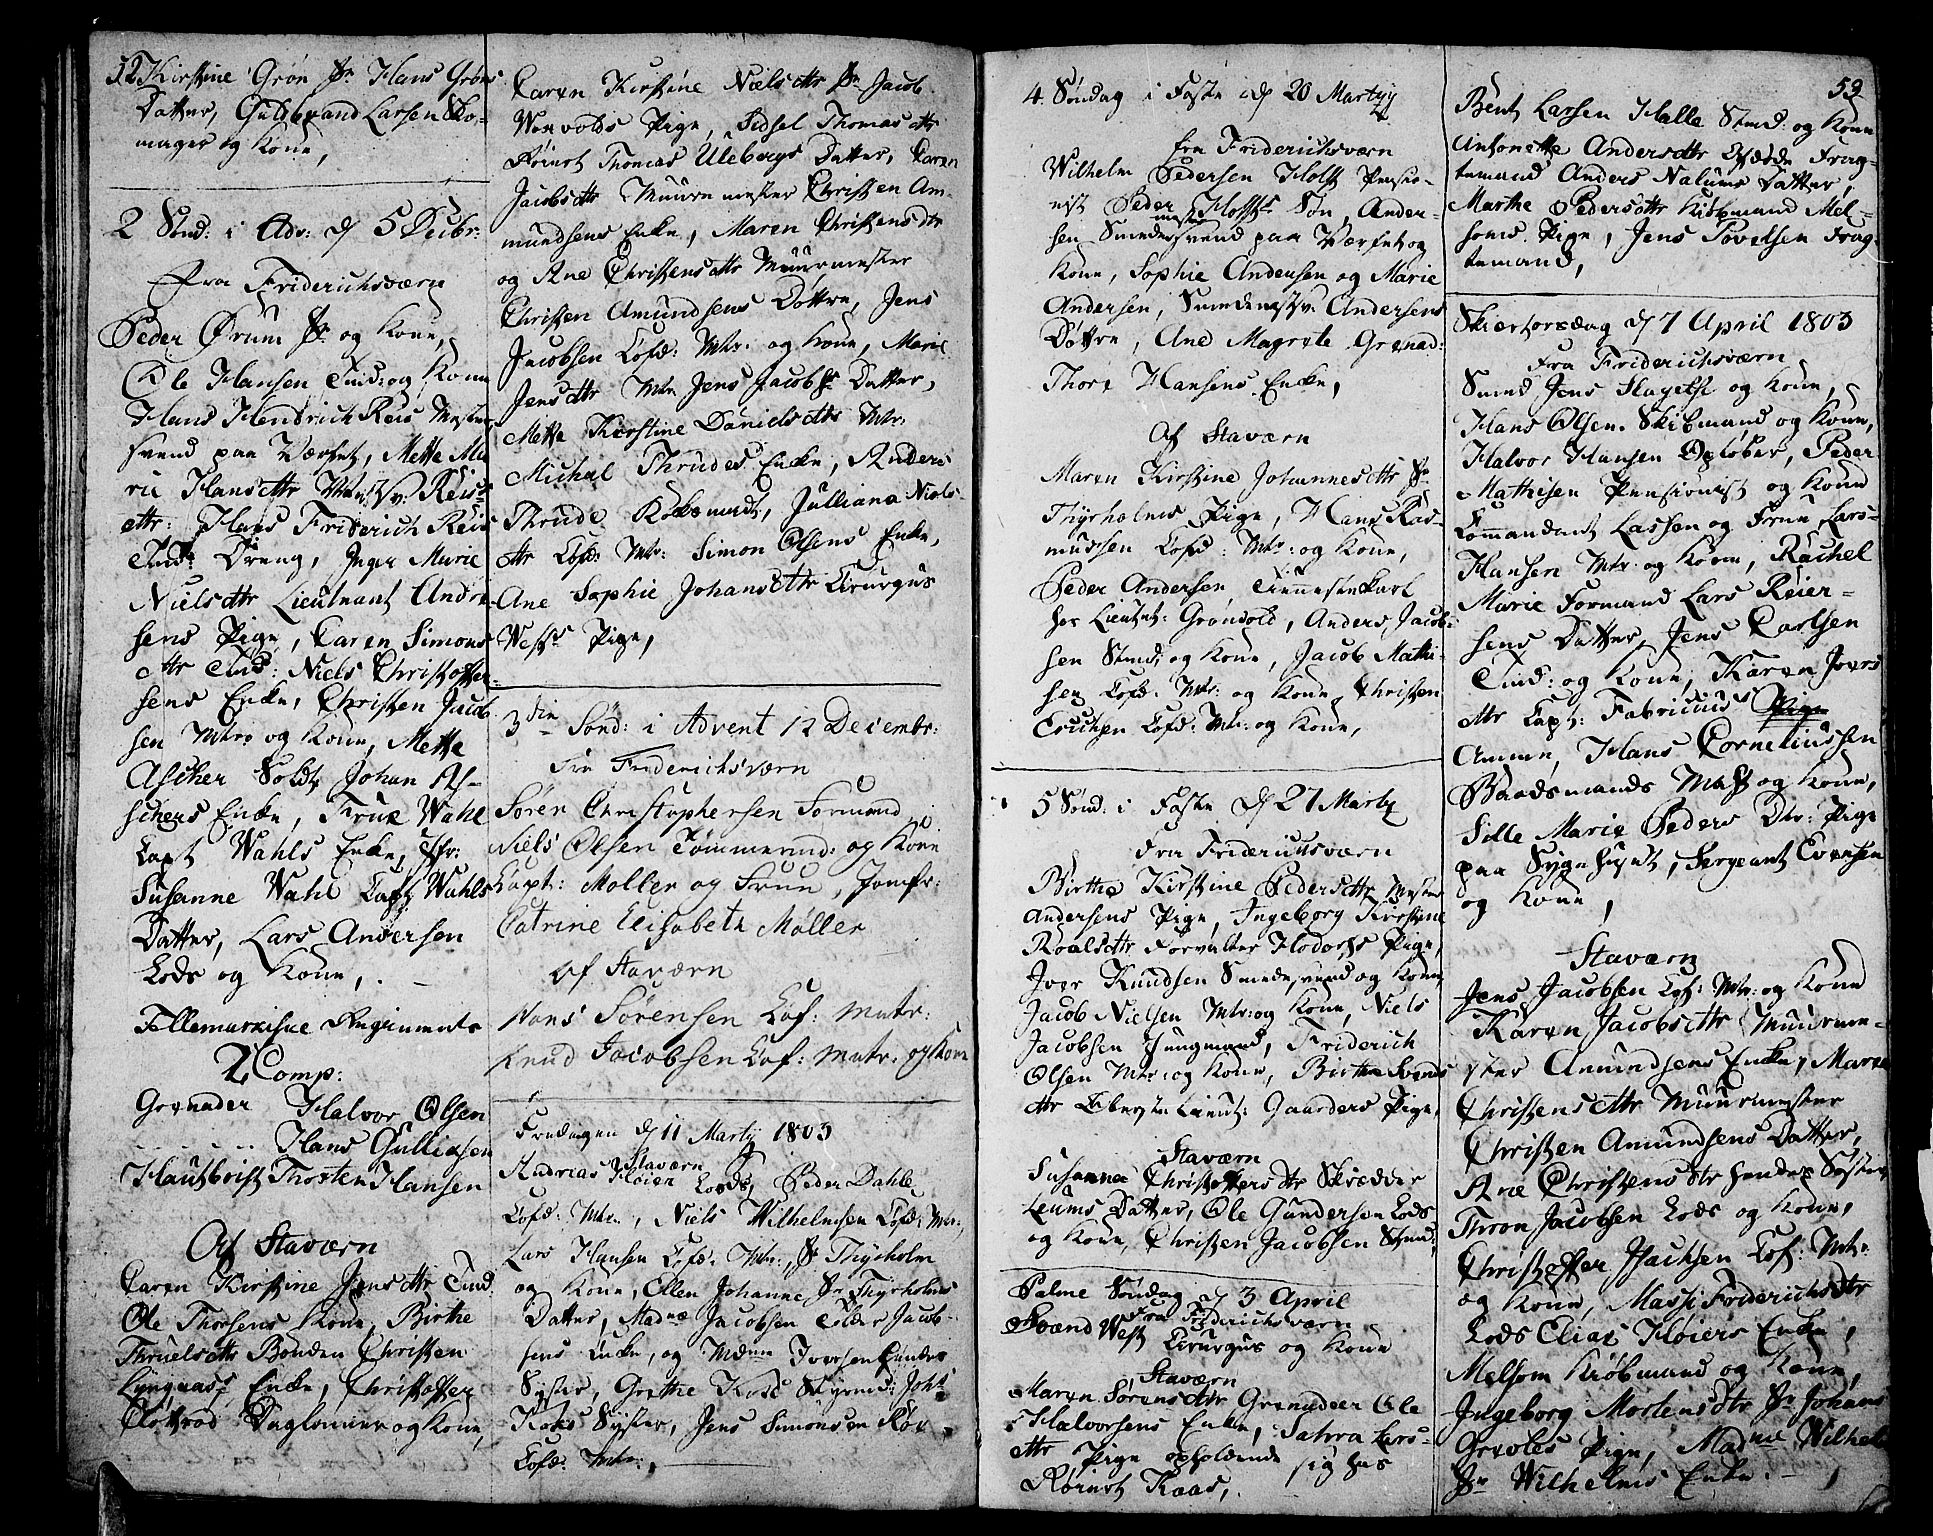 52 Kirstine Grøn Sr. Hans Grøns
Datter, Guldbrand Larsen Sko-
mager og Kone,
2 Sønd: i Adv: d 5 Decbr:
Fra Friderichsværn
Peder Ørum Sr og Kone,
Ole Hansen Tmd: og Kone
Hans Hendrich Reis Mester
svend paa Værfet, Mette Ma
rie Hansdttr Mstsv. Reis
dttr: Hans Friderich Reis
Tmd: Dreng, Inger Marie
Nielsdttr Lieutnant Andre
sens Pige, Caren Simons
dttr Tmd: Niels Christoffer
sens Enke, Christen Jacob
sen Mtr og Kone, Mette
Ascher Soldt Johan As-
schers Enke, Frue Wahl
Capt Wahls Enke, Jfr:
Susanne Wahl Capt: Wahls
Datter, Lars Andersen
Lods og Kone,
Tellemarkiske Regiments
2 Comp:
Grenader Halvor Olsen
Hans Gullichsen
Hautboist Thorsten Hansen
Af Staværn
Caren Kirstine Jensdttr Tmd
Ole Thorsens Kone, Birthe
Thruelsdttr Bonden Christen
Lyngaass Enke, Christoffer
Daglønner og Kone,
Caren Kirstine Nielsdttr Sr Jacob
Worvolds Pige, Sidsel Thomasdttr
Thomas Ulebergs Datter, Caren
Jacobsdttr Muurmester Christen Am-
mundsens Enke, Maren Christensdtr
og Ane Christensdttr Muurmester
Christen Amundsens Døttre, Jens
Jacobsen Cofd: Mtr: og Kone, Marie
Jensdttr Mtr Jens Jacobs: Datter,
Mette Kirstine Danielsdttr Mtr:
Michal Thrudes Enke, Anders
Thrude Koksmadt, Julliana Niels
dttr Cofd: Mtr: Simon Olsens Enke,
Ane Sophie Johansdttr Cirurgus
Wests Pige,
3die Sønd: i Advent 12 Decembr:
Fra Friderichsværn
Sören Christophersen Formand
Niels Olsen Tømmermd: og Kone
Capt: Møller og Frue, Jomfr:
Catrine Elisabeth Møller
af Staværn
Hans Sörensen Cof: Matr:
Knud Jacobsen Cof: Matr: og Kone
Fredagen d 11 Martij 1803
Staværn
Andreas Høien Lods, Peder Dahle
Cofd: Mtr:, Niels Wilhelmsen Cofd: Mtr,
Lars Hansen Cofd: Mtr:, Sr Thyrholm
og Kone, Ellen Johanne Sr Thyrholms
Datter, Madme Jacobsen Tolder Jacob-
sens Enke, og Mdme Iversen hendes
Syster, Grethe Koks Styrmd: Joh:
Koks Syster, Jens Simonsen
Cofd: Mtr:,
4 Søndag i Faste d 20 Martij
fra Friderichsværn
Wilhelm Pedersen Holst Pensio-
nist Peder Holsts Søn, Ander-
sen Smedemestersvend paa Værfet og
Kone, Sophie Andersen og Marie
Andersen, Smedemstsv: Andersens
Døttre, Ane Magrete Grenad:
Thore Hansens Enke,
Af Staværn
Maren Kirstine Johannesdttr Sr
Thyrholms Pige, Hans Ras-
mussen Cofd: Mtr: og Kone,
Peder Andersen Tiennestekarl
hos Lieutnt: Grønvold, Anders Jacob-
sen Stmd: og Kone, Jacob Mathi-
sen Cofd: Mtr: og Kone, Christen
Cofd: Mtr: og Kone,
5 Sønd: i Faste d 27 Martij
Fra Friderichsværn
Birthe Kirstine Pedersdttr Mester
Andersens Pige, Ingeborg Kirstine
Roalsdttr Forvalter Pige,
Iver Knudsen Smedesvend og Kone
Jacob Nielsen Mtr: og Kone, Niels
Jacobsen Jungmand, Friderich
Olsen Mtr: og Kone, Birthe Svends
dttr Oberste Lieut: Gaarders Pige,
Staværn
Susanna Christoffersdttr Skrædder
Leums Datter, Ole Gundersen Lods
og Kone, Christen Jacobsen Stmd:,
Palme Søndag d 3 April
Fra Friderichsværn
Svend West Cirurgus og Kone
Staværn
Maren Sørensdttr Grenadeer Ole
Halvorsens Enke, Sahra Lars-
dttr Pige opholdende sig hos
Kaas,
53
Bent Larsen Halle Stmd: og Kone
Antonette Andersdttr Frag-
temand Anders Nalums Datter,
Marthe Pedersdttr Kiøbmand Mel-
soms Pige, Jens Povelsen Frag-
temand,
Skiertorsdag d 7 April 1803
Fra Friderichsværn
Smed Jens og Kone,
Hans Olsen Skibmand og Kone,
Halvor Hansen Opløber, Peder
Mathisen Pensionist og Kone
Commandant Lassen og Frue, Lars
Hansen Mtr: og Kone, Rachel
Marie Formand Lars Reier-
sens Datter, Jens Carlsen
Tmd: og Kone, Karen Joers
dttr Capt: Fabricius Pige
Ammen, Hans Corneliussen
Baadsmands Mat og Kone,
Sille Marie Peders Dtr: Pige
paa Sygehuset, Sergeant Evensen
og Kone,
Staværn
Jens Jacobsen Cof: Mtr: og Kone
Karen Jacobsdttr Muurme-
ster Amundsens Enke, Maren
Christensdttr Muurmester
Christen Amundsens Datter,
Ane Christensdtr hendes Syster,
Thron Jacobsen Lods og Kone,
Christoffer Isachsen Cof: Mtr:
og Kone, Massi Friderichsdttr
Lods Elias Høiers Enke,
Melsom Kiøbmand og Kone,
Ingeborg Mortensdtr Sr Johans
Pige, Madme Wilhelm
Sr Wilhelms Enke.